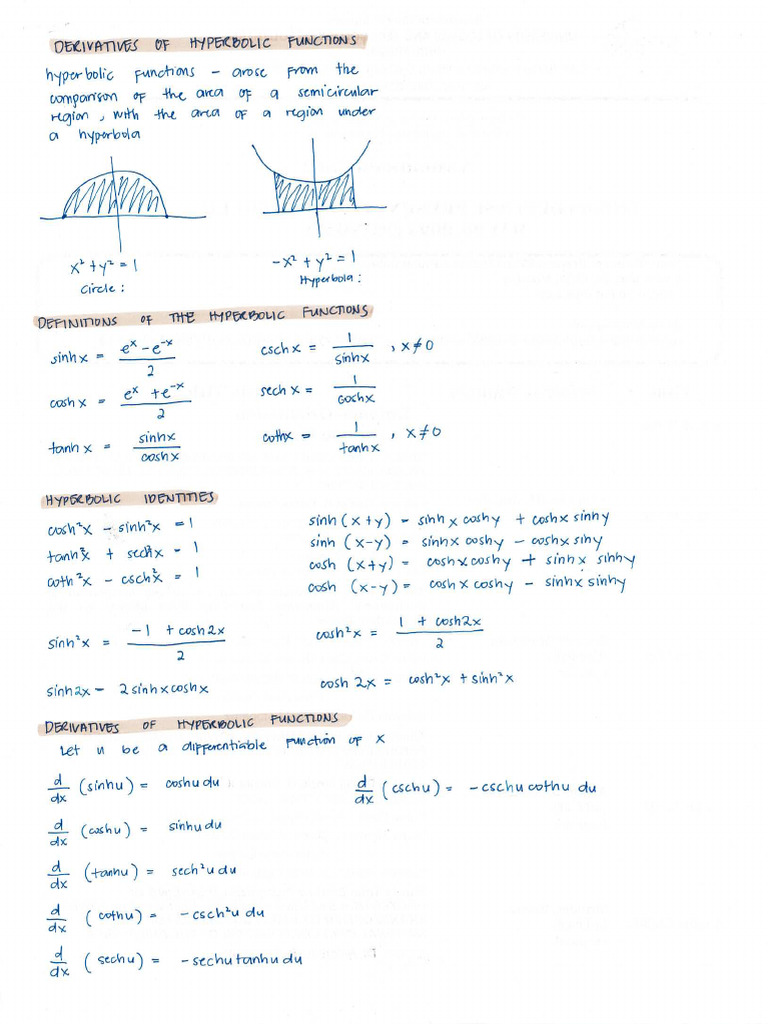 DERIVATIVES OF HYPERBOLIC FUNCTIONS
hyperbolic functions – arose from the
comparison of the area of a semicircular
region, with the area of a region under
a hyperbola
x² + y² = 1
Circle:
-x² + y² = 1
Hyperbola:
DEFINITIONS OF THE HYPERBOLIC FUNCTIONS
sinhx = (eˣ - e⁻ˣ)/2
cschx = 1/sinhx , x≠0
coshx = (eˣ + e⁻ˣ)/2
sechx = 1/coshx
tanhx = sinhx/coshx
cothx = 1/tanhx , x≠0
HYPERBOLIC IDENTITIES
cosh²x - sinh²x = 1
tanh²x + sech²x = 1
coth²x - csch²x = 1
sinh(x+y) = sinhxcoshy + coshxsinhy
sinh(x-y) = sinhxcoshy - coshxsihy
cosh(x+y) = coshxcoshy + sinhxsinhy
cosh(x-y) = coshxcoshy - sinhxsinhy
sinh²x = (-1 + cosh2x)/2
cosh²x = (1 + cosh2x)/2
sinh2x = 2sinhxcoshx
cosh2x = cosh²x + sinh²x
DERIVATIVES OF HYPERBOLIC FUNCTIONS
Let u be a differentiable function of x
d/dx (sinhu) = coshu du
d/dx (cschu) = -cschucothu du
d/dx (coshu) = sinhu du
d/dx (tanhu) = sech²u du
d/dx (cothu) = -csch²u du
d/dx (sechu) = -sechutanhu du